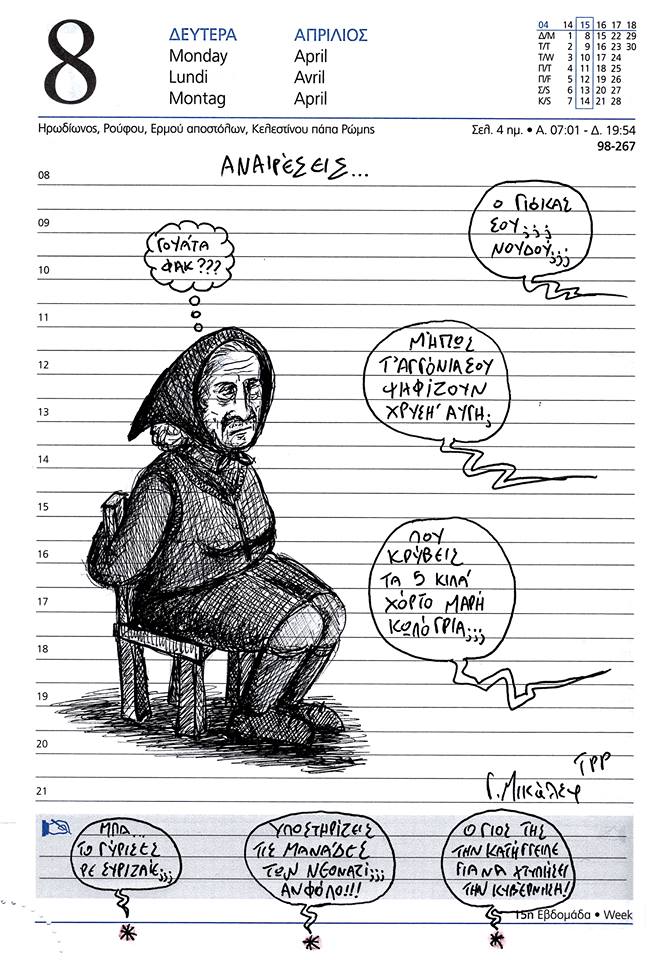 8
ΔΕΥΤΕΡΑ ΑΠΡΙΛΙΟΣ
Monday April
Lundi Avril
Montag April
04 14 15 16 17 18
Δ/M 1 8 15 22 29
T/T 2 9 16 23 30
T/W 3 10 17 24
Π/T 4 11 18 25
Π/F 5 12 19 26
Σ/S 6 13 20 27
K/S 7 14 21 28
Ηρωδίωνος, Ρούφου, Ερμού αποστόλων, Κελεστίνου πάπα Ρώμης
Σελ. 4 ημ. • Α. 07:01 - Δ. 19:54
98-267
ΑΝΑΙΡΕΣΕΙΣ...
08
09
10
11
12
13
14
15
16
17
18
19
20
21
ΓΟΥΑΤΑ
ΦΑΚ???
Ο ΓΙΟΚΑΣ
ΣΟΥ;;;
ΝΟΥΔΟΥ;;;
ΜΉΠΩΣ
Τ'ΑΓΓΌΝΙΑ ΣΟΥ
ΨΗΦΊΖΟΥΝ
ΧΡΥΣΉ ΑΥΓΉ;
ΠΟΥ
ΚΡΎΒΕΙΣ
ΤΑ 5 ΚΙΛΆ
ΧΌΡΤΟ ΜΑΡΉ
ΚΩΛΌΓΡΙΑ;;;
ΤΡΡ
Γ. Μικάλεφ
ΜΠΑ...
ΤΟ ΓΎΡΙΣΕΣ
ΡΕ ΣΥΡΙΖΑΊΕ;;;
ΥΠΟΣΤΗΡΊΖΕΙΣ
ΤΙΣ ΜΑΝΆΔΕΣ
ΤΩΝ ΝΕΟΝΑΖΊ;;;
ΑΝΦΌΛΟ!!!
Ο ΓΙΟΣ ΤΗΣ
ΤΗΝ ΚΑΤΉΓΓΕΙΛΕ
ΓΙΑ ΝΑ ΧΤΥΠΉΣΕΙ
ΤΗΝ ΚΥΒΈΡΝΗΣΗ!
15η Εβδομάδα • Week